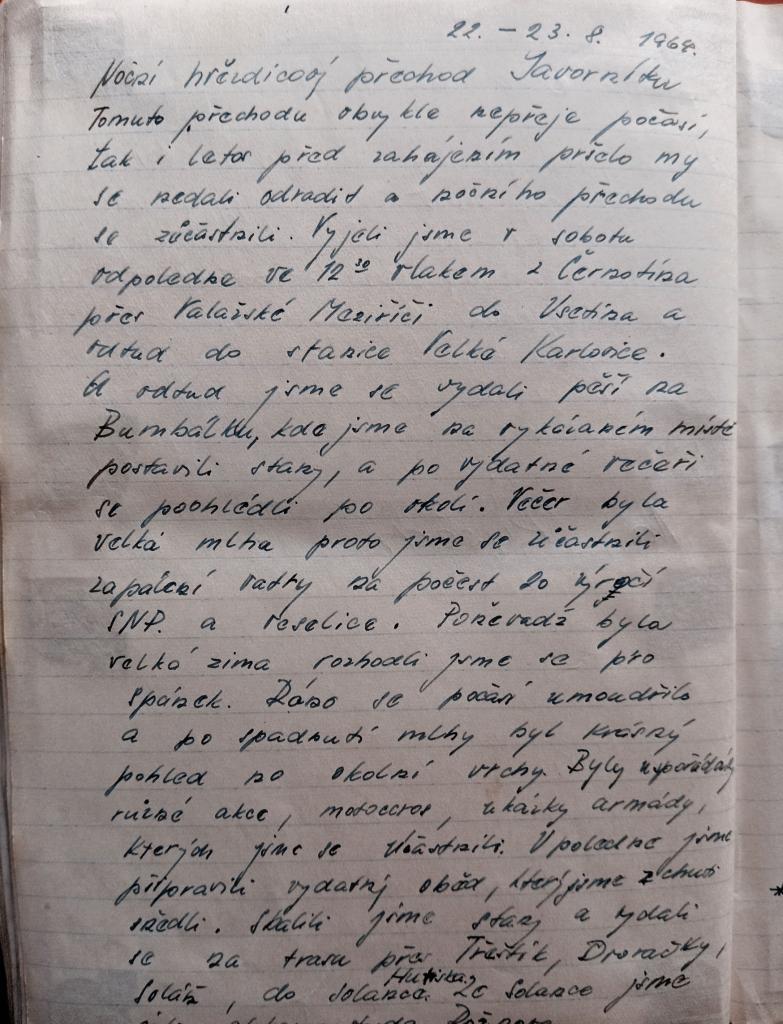 22. - 23. 8. 1964.
Noční hřebenový přechod Javorníku
Tomuto přechodu obvykle nepřeje počasí,
tak i letos před zahájením pršelo my
se nedali odradit a nočního přechodu
se zúčastnili. Vyjeli jsme v sobotu
odpoledne ve 12 30 vlakem z Černotína
přes Valašské Meziříčí do Vsetína a
odtud do stanice Velké Karlovice.
A odtud jsme se vydali pěší na
Bumbálku, kde jsme na vykázaném místě
postavili stany, a po vydatné večeři
se poohlédli po okolí. Večer byla
velká mlha proto jsme se zúčastnili
zapálení vatry na počest 20 výročí
SNP. a veselice. Poněvadž byla
velká zima rozhodli jsme se pro
spánek. Ráno se počasí umoudřilo
a po spadnutí mlhy byl krásný
pohled na okolní vrchy. Byly uspořádány
různé akce, motoccros, ukázky armády,
kterých jsme se zúčastnili. V poledne jsme
připravili vydatný oběd, který jsme z chuti
snědli. Sbalili jsme stany a vydali
se na trasu přes Třeštík, Dvoračky,
Soláň, do Hutiska. Ze Solance jsme